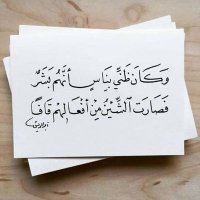 وَكَانَ ظَنِّي بِنَاسٍ أَنَّهُمْ بَشَرٌ
فَصَارَتِ الشِّيْنُ مِنْ أَفْعَالِهِمْ قَافًا